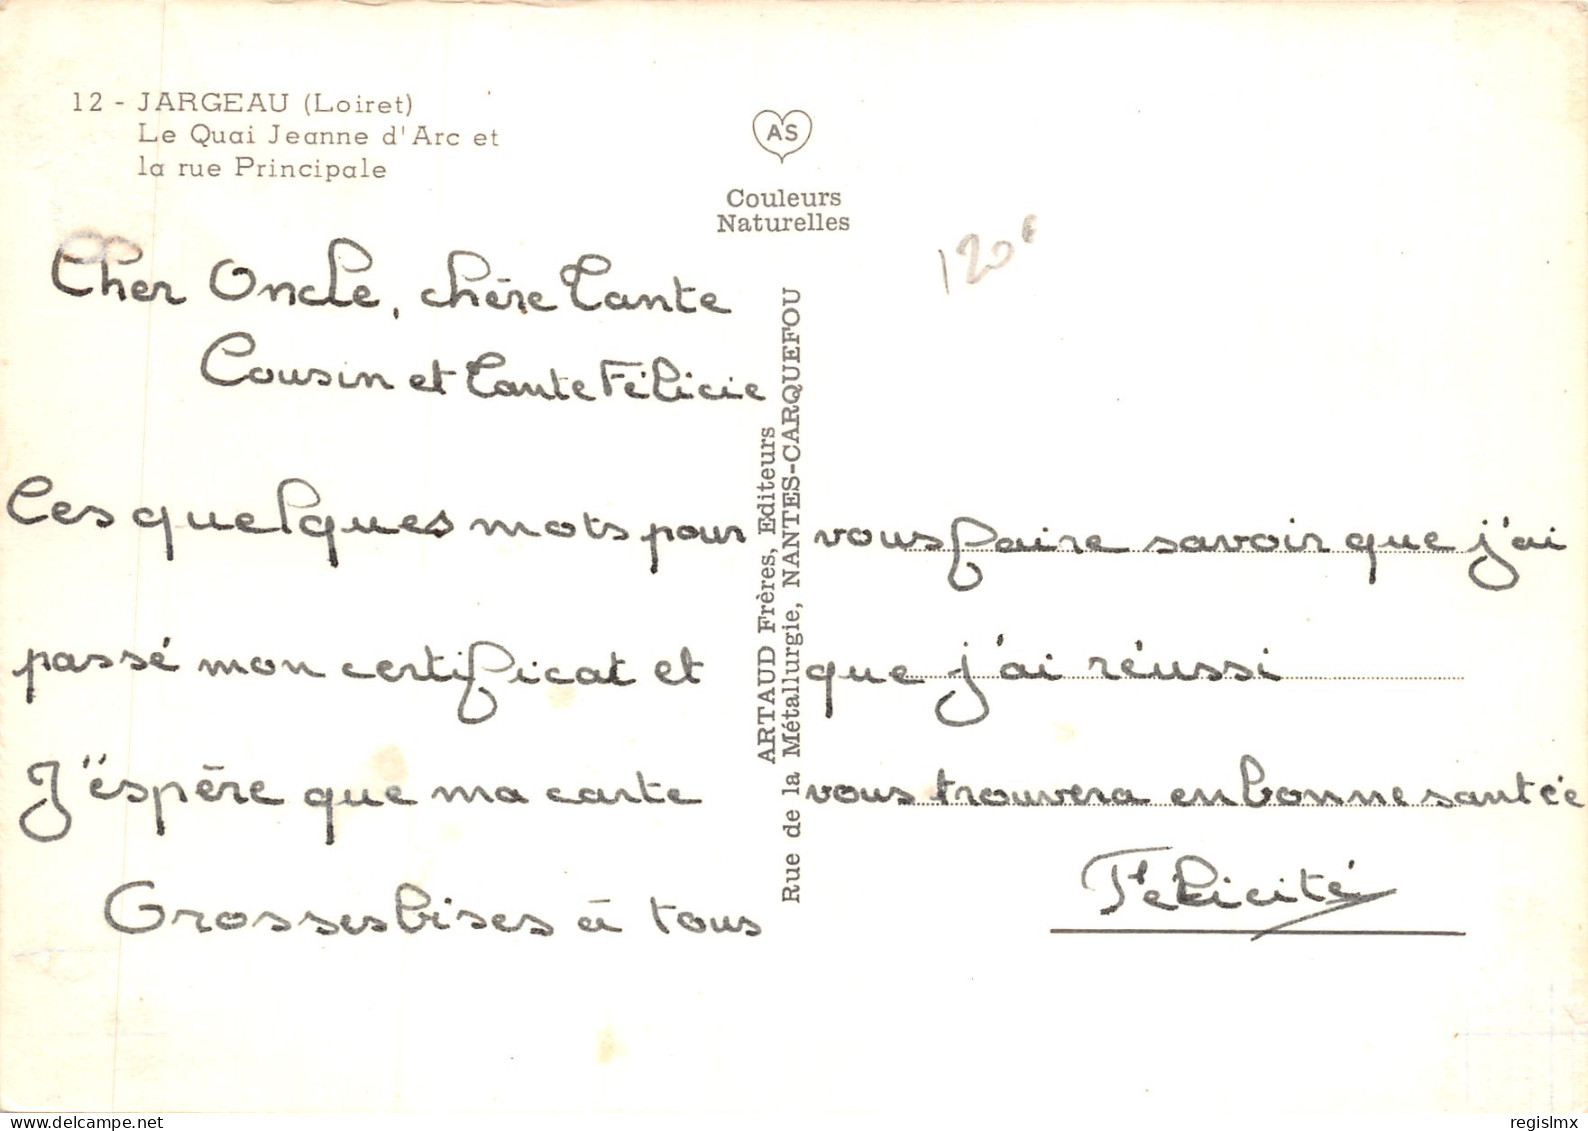 12 - JARGEAU (Loiret)
Le Quai Jeanne d'Arc et
la rue Principale
AS
Couleurs
Naturelles
120
Cher Oncle, chère Tante
Cousin et Tante Félicie
Ces quelques mots pour vous faire savoir que j'ai
passé mon certificat et que j'ai réussi
J'éspère que ma carte vous trouvera en bonne santée
Grosses bises à tous Félicité
ARTAUD Frères, Editeurs
Rue de la Métallurgie, NANTES-CARQUEFOU
regislmx